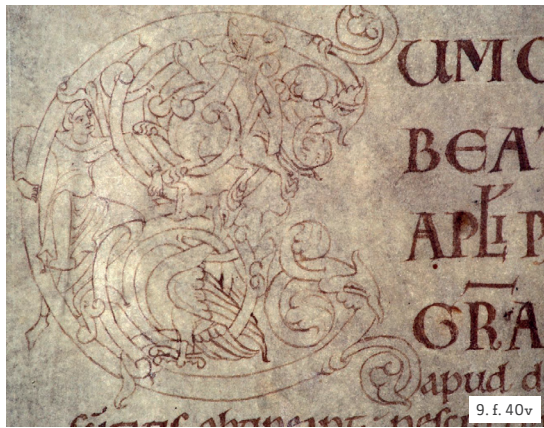 UM C
BEAT
APLI P
GRA
apud d
9. f. 40v